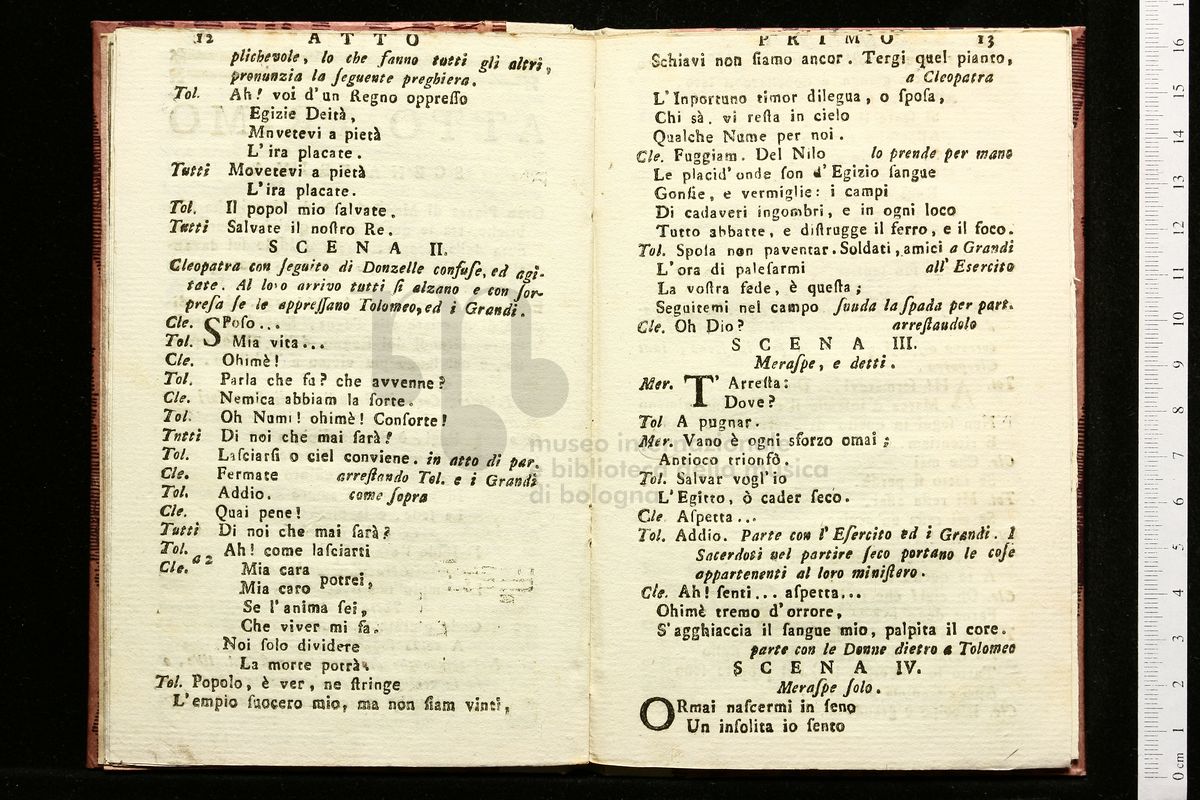 12 ATTO
plichevole, lo che fanno tutti gli altri,
pronunzia la ſeguente preghiera.
Tol. Ah! voi d'un Regno oppreſſo
Egizie Deità,
Mnvetevi a pietà
L'ira placate.
Tutti Movetevi a pietà
L'ira placate.
Tol. Il popol mio ſalvate.
Tutti Salvate il noſtro Re.
SCENA II.
Cleopatra con ſeguito di Donzelle confuſe, ed agi-
tate. Al loro arrivo tutti ſi alzano e con ſor-
preſa ſe le appreſſano Tolomeo, ed i Grandi.
Cle. SPoſo...
Tol. Mia vita...
Cle. Ohimè!
Tol. Parla che fu? che avvenne?
Cle. Nemica abbiam la ſorte.
Tol. Oh Numi! ohimè! Conſorte!
Tntti Di noi che mai ſarà?
Tol. Laſciarſi o ciel conviene. in atto di par.
Cle. Fermate arreſtando Tol. e i Grandi
Tol. Addio. come ſopra
Cle. Quai pene!
Tutti Di noi che mai ſarà?
Tol. Ah! come laſciarti
Cle. a 2 Mia cara
Mia caro potrei,
Se l'anima ſei,
Che viver mi fa.
Noi ſolo dividere
La morte potrà.
Tol. Popolo, è ver, ne ſtringe
L'empio ſuocero mio, ma non ſiam vinti,
PRIMO 13
Schiavi non ſiamo ancor. Tergi quel pianto,
a Cleopatra
L'Inportuno timor dilegua, o ſpoſa,
Chi sà. vi reſta in cielo
Qualche Nume per noi.
Cle. Fuggiam. Del Nilo lo prende per mano
Le placid' onde ſon d'Egizio ſangue
Gonfie, e vermiglie: i campi
Di cadaveri ingombri, e in ogni loco
Tutto abbatte, e diſtrugge il ferro, e il foco.
Tol. Spoſa non paventar. Soldati, amici a Grandi
L'ora di paleſarmi all' Eſercito
La voſtra fede, è queſta;
Seguitemi nel campo ſnuda la ſpada per part.
Cle. Oh Dio? arreſtandolo
SCENA III.
Meraſpe, e detti.
Mer. T' Arreſta:
Dove?
Tol A pugnar.
Mer. Vano è ogni sforzo omai;
Antioco trionfò.
Tol. Salvar vogl'io
L'Egitto, ò cader ſeco.
Cle Aſpetta...
Tol. Addio. Parte con l'Eſercito ed i Grandi. I
Sacerdoti nel partire ſeco portano le coſe
appartenenti al loro miniſtero.
Cle. Ah! ſenti... aſpetta...
Ohimè tremo d'orrore,
S'agghiaccia il ſangue mio, palpita il core.
parte con le Donne dietro a Tolomeo
SCENA IV.
Meraſpe ſolo.
ORmai naſcermi in ſeno
Un inſolita io ſento
museo internazionale
e biblioteca della musica
di bologna
0 cm 1 2 3 4 5 6 7 8 9 10 11 12 13 14 15 16